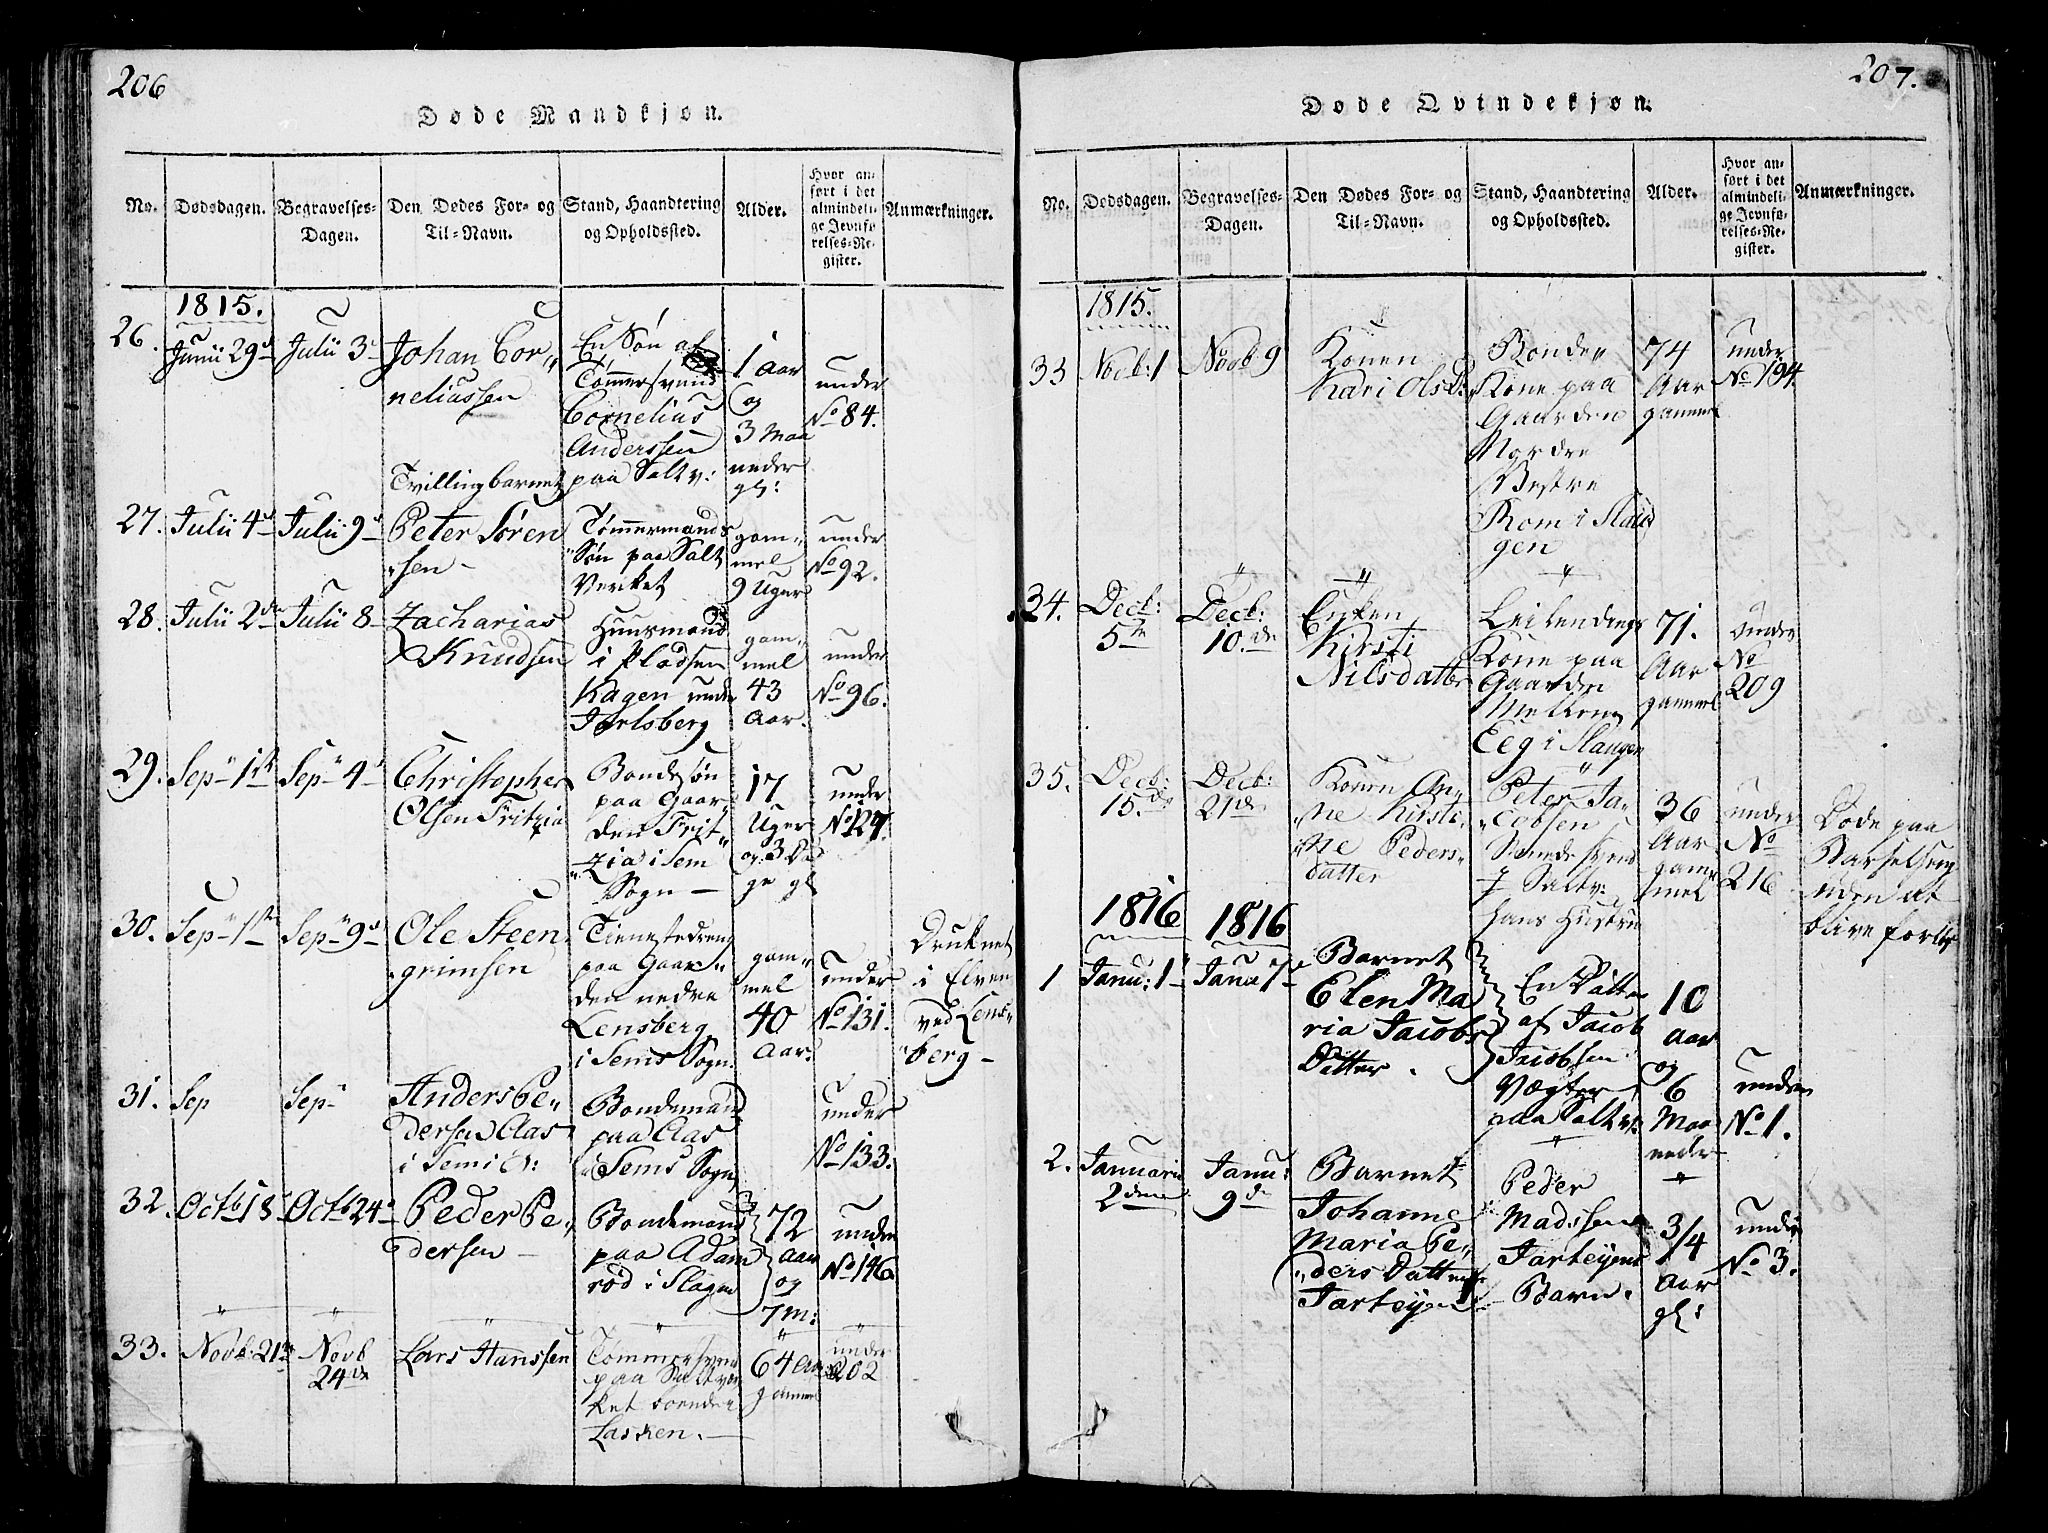 206
Døde Mandkjøn.
No.
Dødsdagen.
Begravelses-
Dagen.
Den Dødes For- og
Til-Navn.
Stand, Haandtering
og Opholdssted.
Alder.
Hvor an-
ført i det
almindeli-
ge Jevnfø-
relses-Re-
gister.
Anmærkninger.
1815.
26.
Junii 29d
Julii 3d
Johan Cor„
neliussen
Tvillingbarnet
En Søn af
Tømmersvend
Cornelius
Anderssen
paa Saltv:
1 Aar
og
3 Maa
neder
gl:
under
No 84.
27.
Julii 4d
Julii 9d
Peter Søren
„sen -
Tømmermands
Søn paa Salt
Verket
gam„
mel
9 Uger
under
No 92.
28.
Julii 2de
Julii 8-
Zacharias
Knudsen
Huusmand
i Pladsen
Hagen unde
Jarlsberg
gam„
mel
43
Aar.
under
No 96.
29.
Sep„ 1st
Sep„ 4d
Christopher
Olsen Fritzia
Bondesøn
paa Gaar
den Frit„
„zia i Sem
Sogn -
17
Uger
og 3 Da
ge gl
under
No 127.
30.
Sep„ 1ste
Sep„ 9d
Ole Steen
„grimsen
Tienestedreng
paa Gaar„
den nedre
Lensberg
i Sems Sogn.
gam„
mel
40
Aar.
under
No 131.
Druknet
i Elven
ved Lens„
„berg -
31.
Sep
Sep„
Anders Pe„
dersen Aas
i Sem i
Bondemand
paa Aas
i Sems Sogn
under
No 133.
32.
Octb 18
Octb 24d
Peder Pe„
dersen -
Bondemand
paa Adam
rød i Slagen
72
Aar
og
7 M:
under
No 146
33.
Novb: 21de
Novb
24de
Lars Hanssen
Tømmersven
paa Saltvær
ket boende i
Lasken. -
64 Aar
gammel
under
202
207.
Døde Qvindekjøn.
No.
Dødsdagen.
Begravelses-
Dagen.
Den Dødes For- og
Til-Navn.
Stand, Haandtering
og Opholdssted.
Alder.
Hvor an-
ført i det
almindeli-
ge Jevnfø-
relses-Re-
gister.
Anmærkninger.
1815.
33
Novb: 1
Novb 9
Konen
Kari Olsd:
Bonde„
Kone paa
Gaarden
Nordre
Vestre
Rom i Slau
gen
74
Aar
gammel
under
No 194.
34.
Decb:
5te
Decb:
10.de
Enken
Kirsti
Nilsdatter
Leilendings
Kone paa
Gaarden
Mellem
Eeg i Slaugen
71.
Aar
gammel
under
No
209
35.
Decb:
15.de
Decb:
21de
Konen An„
„ne Kirsti„
„ne Peders„
datter
Peter Ja„
„cobsen
Smedesvend
p Saltv:
hans Hustrue
36
Aar
gam„
mel
under
No
216
Døde paa
Barselseng
uden at
blive forløst
1816
1816
1
Janu: 1
Janu 7
Barnet
Elen Ma
ria Jacobs
Datter.
En Datter
af Jacob
Jacobsen
Vægter
paa Saltv:
10
Aar
og
6
Maa
neder
under
No 1.
2.
Januarii
2den
Janu:
9de
Barnet
Johanne
Maria Pe„
„ders Datter
Jarteyen
Peder
Madssen
Jarteyens
Barn.
3/4
Aar
gl:
under
No 3.